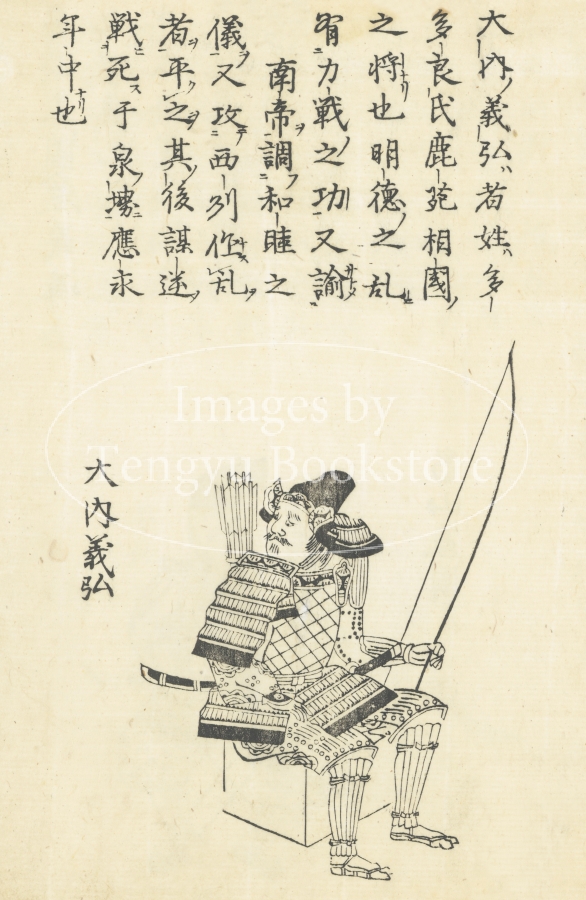 大内義弘者姓多
多良氏鹿苑相國
之将也明德之乱
有力戦之功又諭
南帝調和睦之
儀又攻西列作乱
者平之其後謀逆
戦死于泉堺應永
年中也
大内義弘
Images by
Tengyu Bookstore